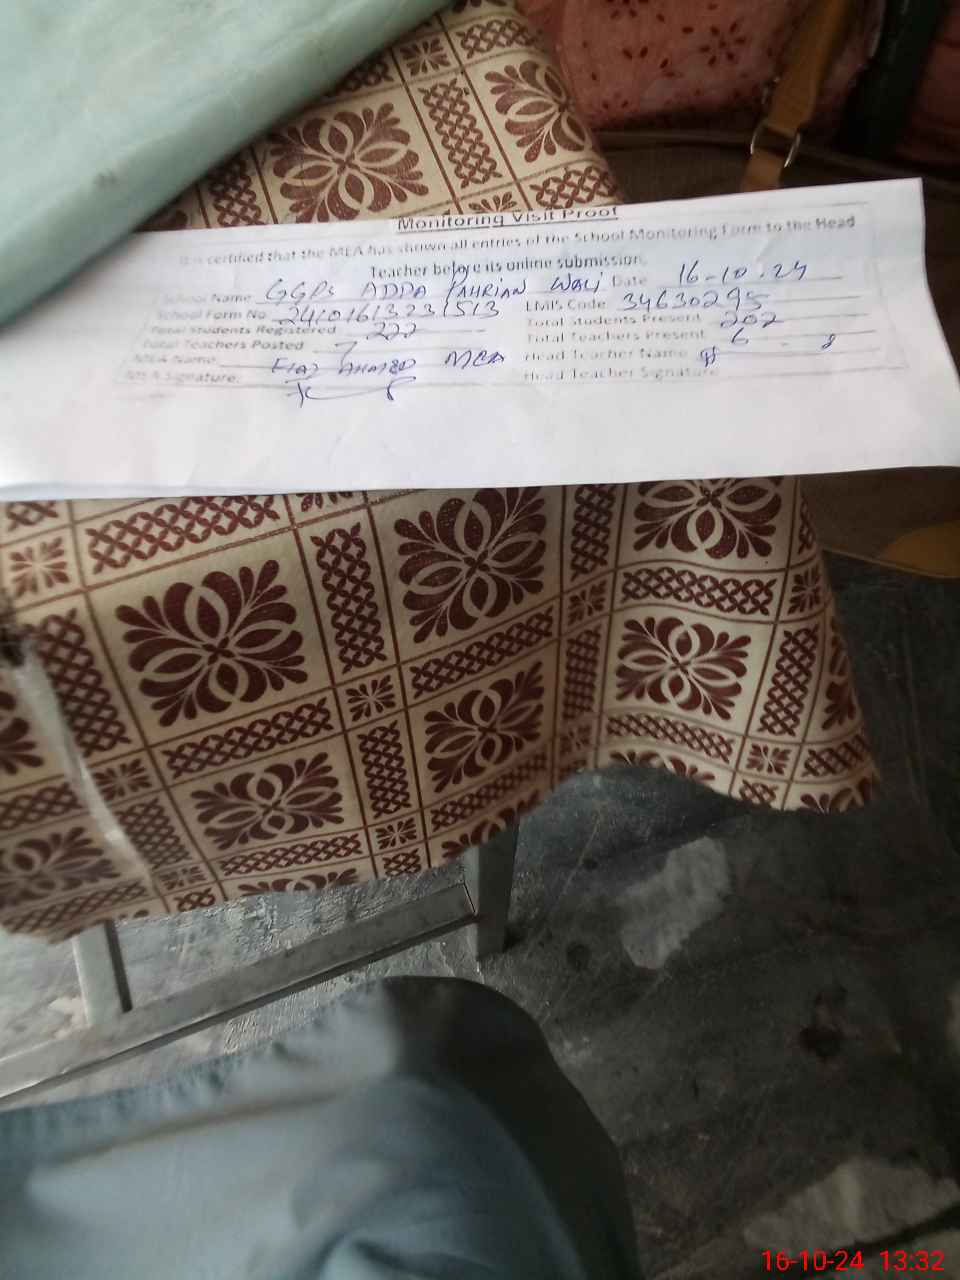 Monitoring Visit Proof
It is certified that the MEA has shown all entries of the School Monitoring Form to the Head
Teacher before its online submission.
School Name GGPS ADDA PAHRIAN WALI Date 16-10-24
School Form No 2410161323 1513 EMIS Code 34630295
Total Students Registered 222 Total Students Present 202
Total Teachers Posted 7 Total Teachers Present 6
MEA Name AHMED MEA Head Teacher Name
MEA Signature: Head Teacher Signature
16-10-24 13:32